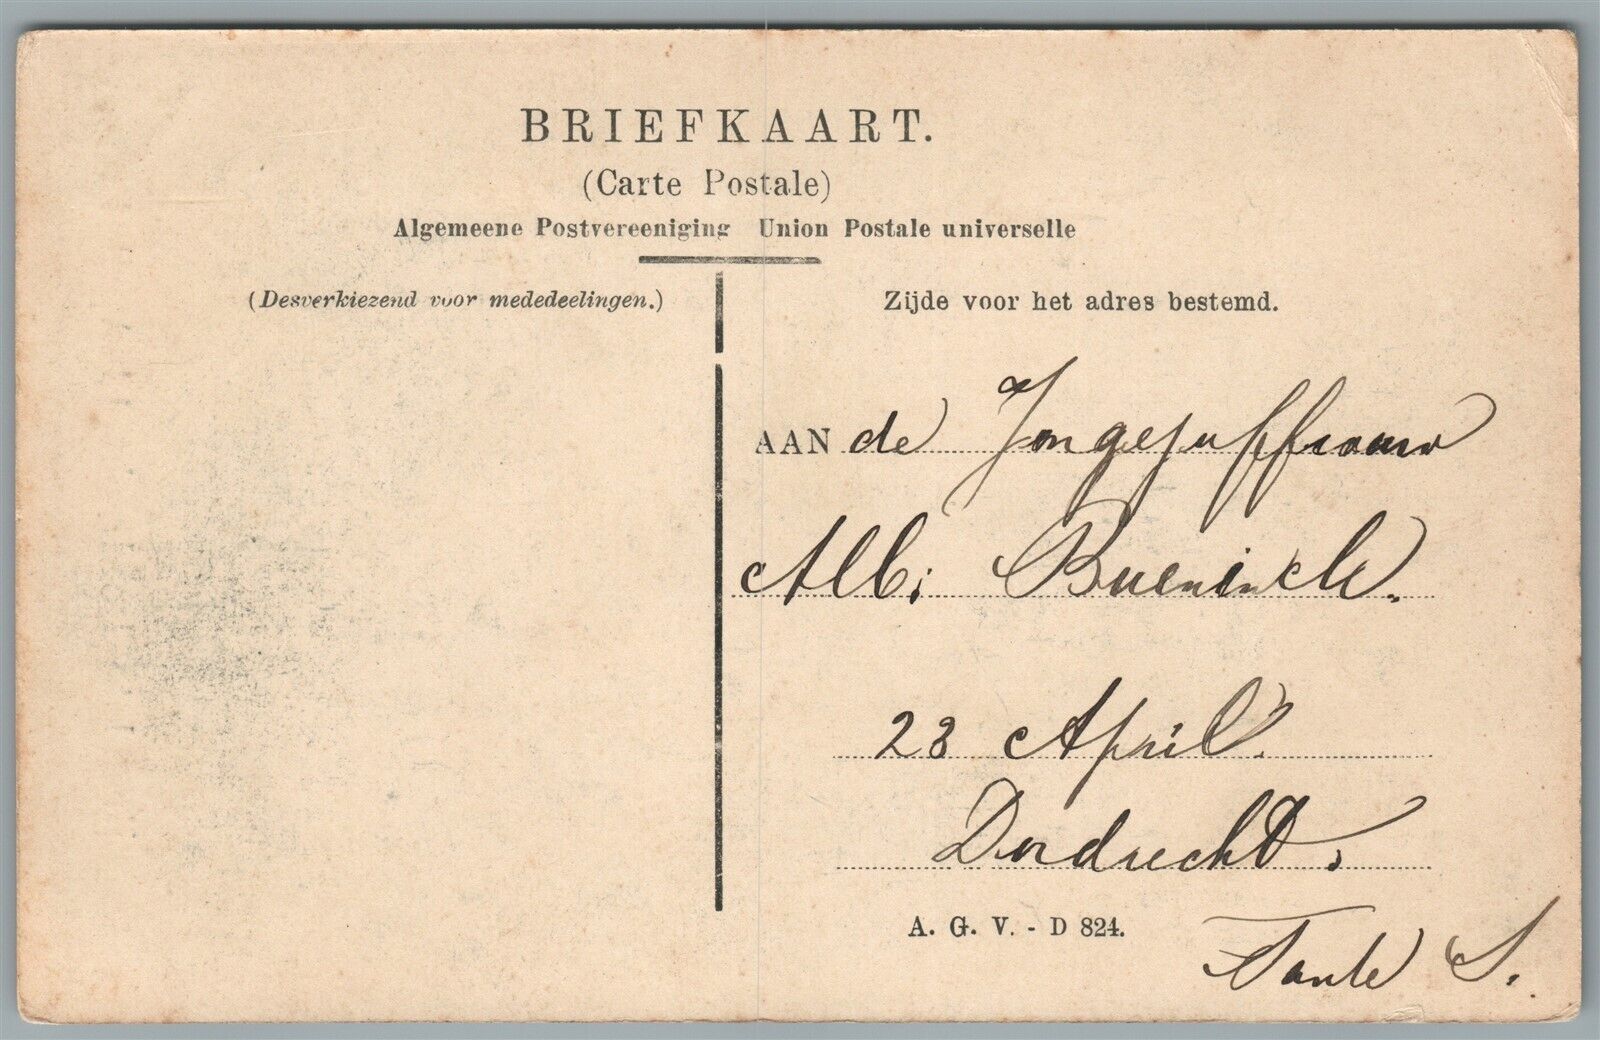 BRIEFKAART.
(Carte Postale)
Algemeene Postvereeniging Union Postale universelle
(Desverkiezend voor mededeelingen.)
Zijde voor het adres bestemd.
AAN de Jongejuffrouw
Alb:
23 April.
Dordrecht.
A. G. V. - D 824.
Tante S.